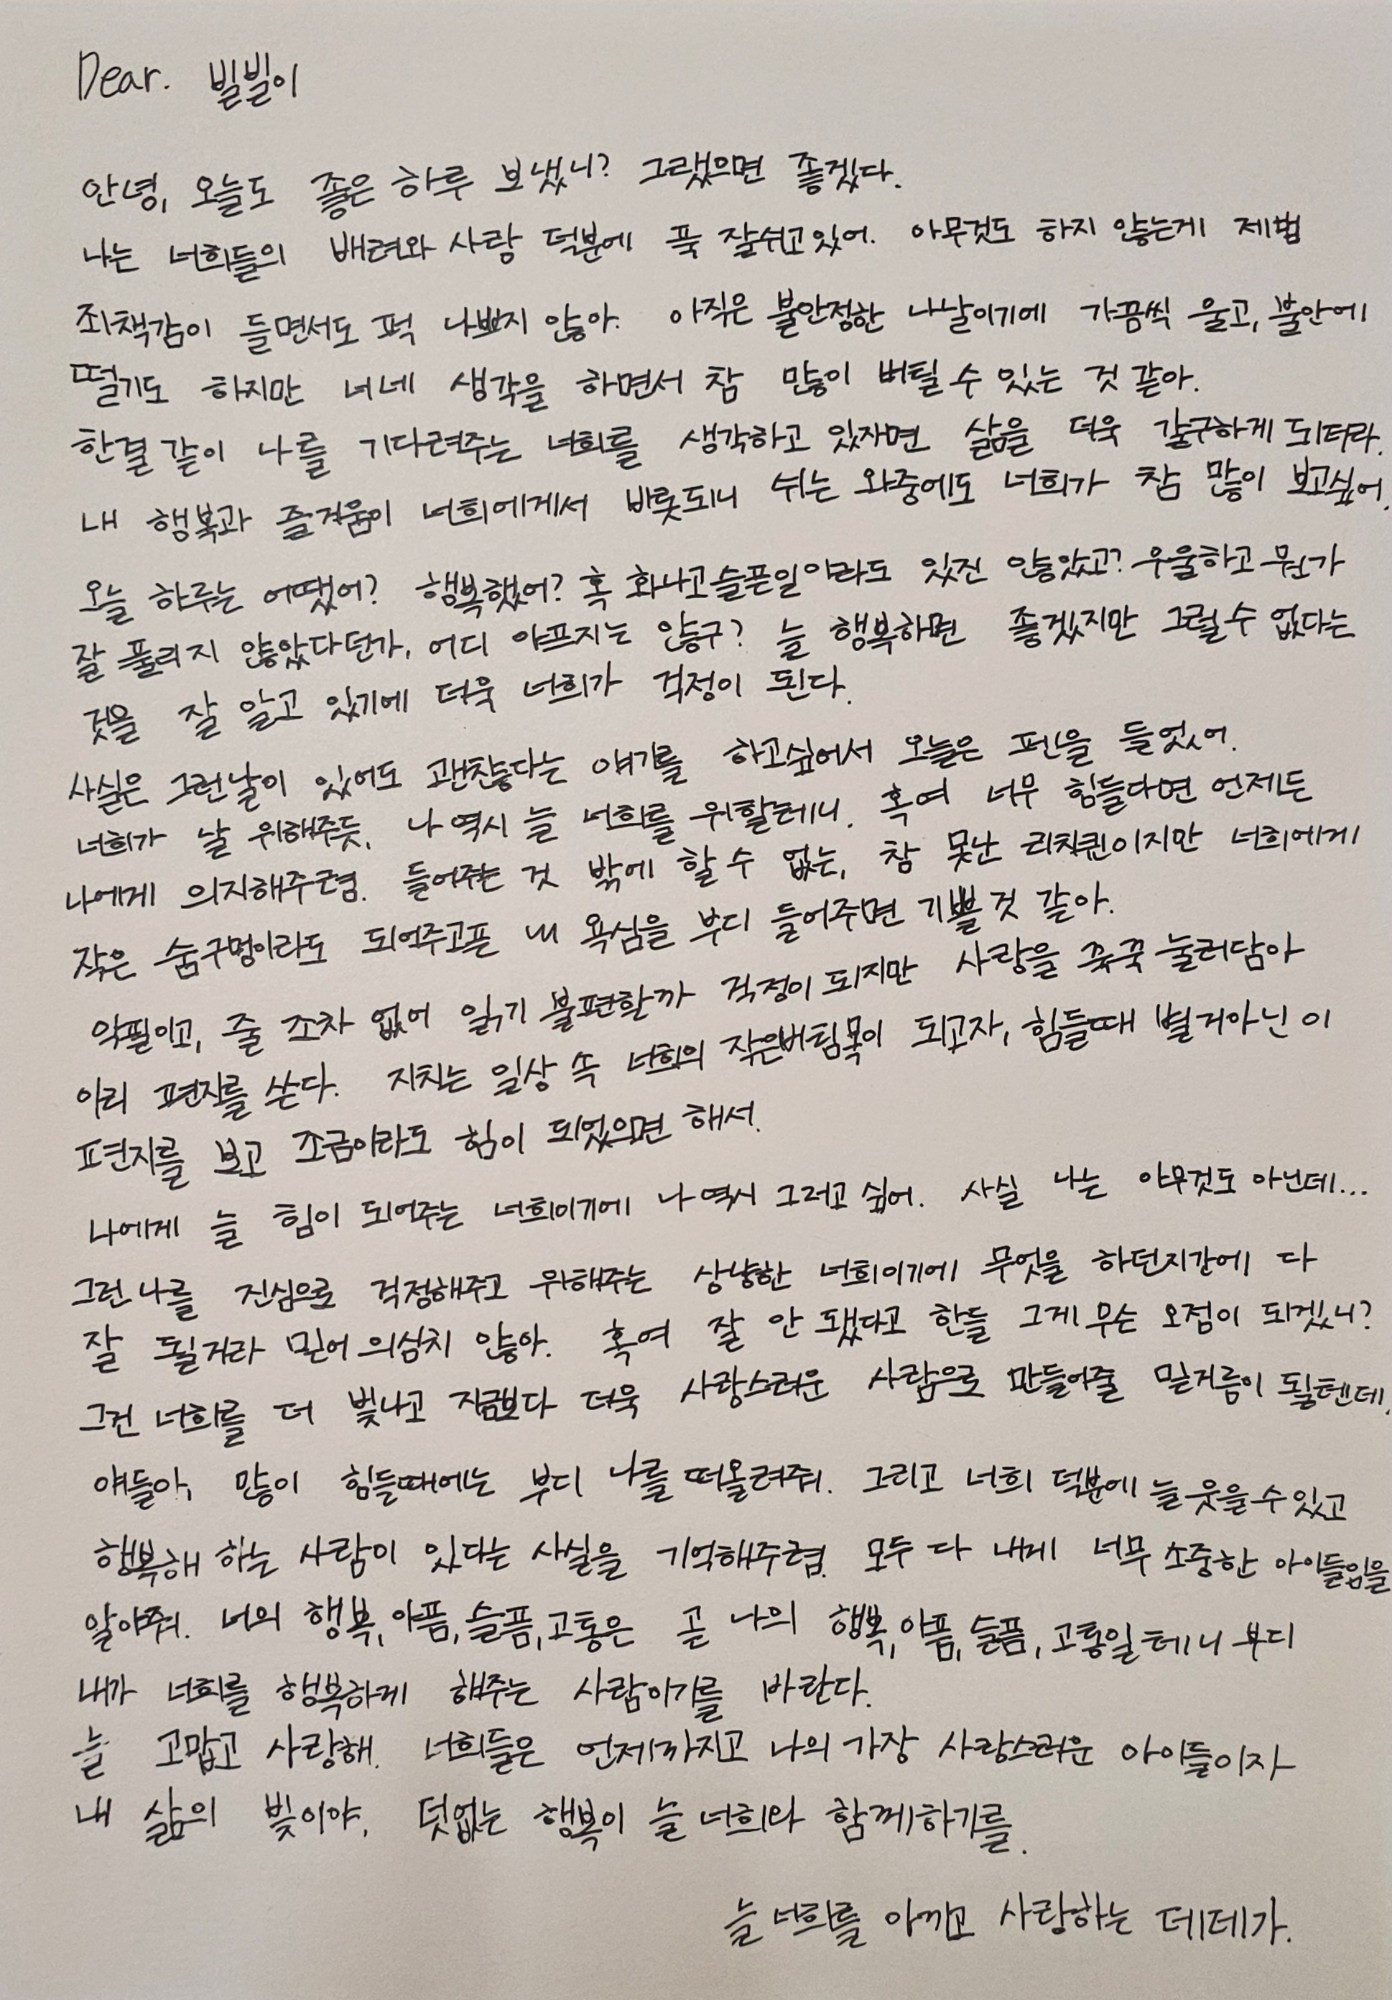 Dear. 빌빌이
안녕, 오늘도 좋은 하루 보냈니? 그랬으면 좋겠다.
나는 너희들의 배려와 사랑 덕분에 푹 잘쉬고있어. 아무것도 하지 않는게 제법
죄책감이 들면서도 퍽 나쁘지 않아. 아직은 불안정한 나날이기에 가끔씩 울고, 불안에
떨기도 하지만 너네 생각을 하면서 참 많이 버틸 수 있는 것 같아.
한결 같이 나를 기다려주는 너희를 생각하고 있자면 삶을 더욱 갈구하게 되더라.
내 행복과 즐거움이 너희에게서 비롯되니 쉬는 와중에도 너희가 참 많이 보고싶어.
오늘 하루는 어땠어? 행복했어? 혹 화나고 슬픈일 이라도 있진 않았고? 우울하고 뭔가
잘 풀리지 않았다던가, 어디 아프지는 않구? 늘 행복하면 좋겠지만 그럴수 없다는
것을 잘 알고 있기에 더욱 너희가 걱정이 된다.
사실은 그런날이 있어도 괜찮다는 얘기를 하고싶어서 오늘은 펜을 들었어.
너희가 날 위해주듯, 나 역시 늘 너희를 위할테니. 혹여 너무 힘들다면 언제든
나에게 의지해주렴. 들어주는 것 밖에 할 수 없는, 참 못난 리치퀸이지만 너희에게
작은 숨구멍이라도 되어주고픈 내 욕심을 부디 들어주면 기쁠것 같아.
악필이고, 줄 조차 없어 읽기 불편할까 걱정이 되지만 사랑을 꾹꾹 눌러담아
이리 편지를 쓴다. 지치는 일상 속 너희의 작은버팀목이 되고자, 힘들때 별거아닌 이
편지를 보고 조금이라도 힘이 되었으면 해서.
나에게 늘 힘이 되어주는 너희이기에 나 역시 그러고 싶어. 사실 나는 아무것도 아닌데...
그런 나를 진심으로 걱정해주고 위해주는 상냥한 너희이기에 무엇을 하던지간에 다
잘 될거라 믿어 의심치 않아. 혹여 잘 안 됐다고 한들 그게 무슨 오점이 되겠니?
그건 너희를 더 빛나고 지금보다 더욱 사랑스러운 사람으로 만들어줄 밑거름이 될텐데.
얘들아, 많이 힘들때에는 부디 나를 떠올려줘. 그리고 너희 덕분에 늘 웃을 수 있고
행복해 하는 사람이 있다는 사실을 기억해주렴. 모두 다 내게 너무 소중한 아이들임을
알아줘. 너의 행복, 아픔, 슬픔, 고통은 곧 나의 행복, 아픔, 슬픔, 고통일테니 부디
내가 너희를 행복하게 해주는 사람이기를 바란다.
늘 고맙고 사랑해. 너희들은 언제까지고 나의 가장 사랑스러운 아이들이자
내 삶의 빛이야. 덧없는 행복이 늘 너희와 함께하기를.
늘 너희를 아끼고 사랑하는 데데가.